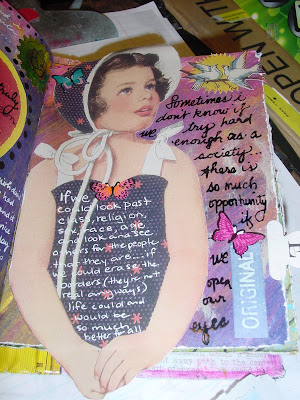 Sometimes i
don't know if
we try hard
enough as a
society..
there is
so much
opportunity
if
we
open
our
eyes
ORIGINAL
If we
could look past
class, religion,
sex, race, age
and look and see
others for the people
that they are... if
we could erase the
borders (they're not
real anyways)
life could and
would be
so much
better 4 all